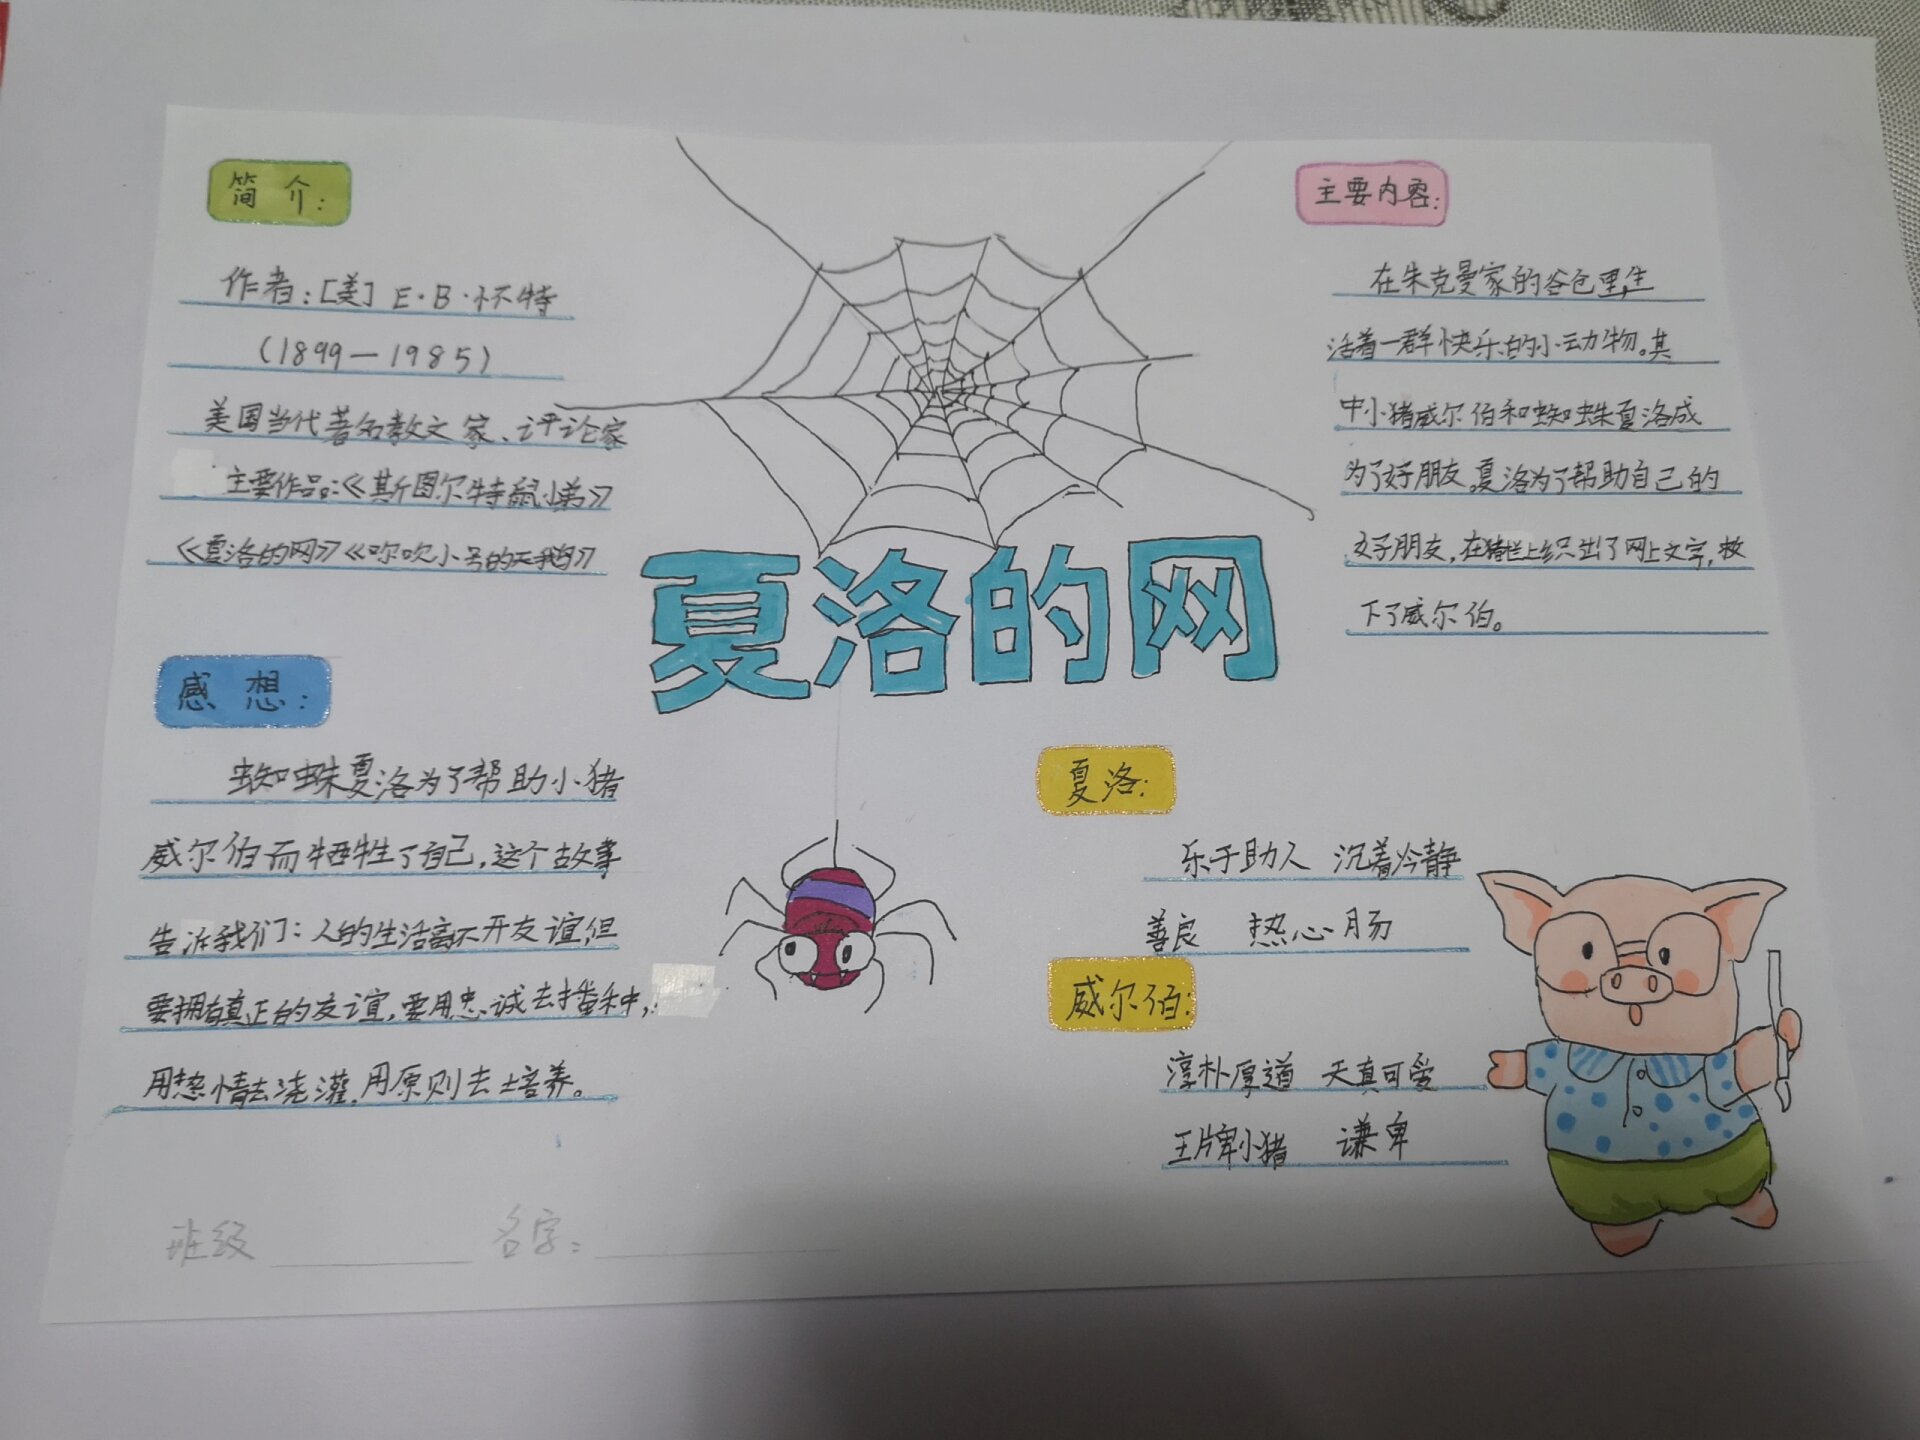 简介:
作者:[美]E·B·怀特
(1899—1985)
美国当代著名散文家、评论家
主要作品:《斯图尔特鼠小弟》
《夏洛的网》《吹小号的天鹅》
感想:
蜘蛛夏洛为了帮助小猪
威尔伯而牺牲了自己,这个故事
告诉我们:人的生活离不开友谊,但
要拥有真正的友谊,要用忠诚去播种,
用热情去浇灌,用原则去培养。
夏洛的网
主要内容:
在朱克曼家的谷仓里,生
活着一群快乐的小动物。其
中小猪威尔伯和蜘蛛夏洛成
为了好朋友。夏洛为了帮助自己的
好朋友,在猪栏上织出了网上文字,救
下了威尔伯。
夏洛:
乐于助人 沉着冷静
善良 热心肠
威尔伯:
淳朴厚道 天真可爱
王牌小猪 谦卑
班级 名字: